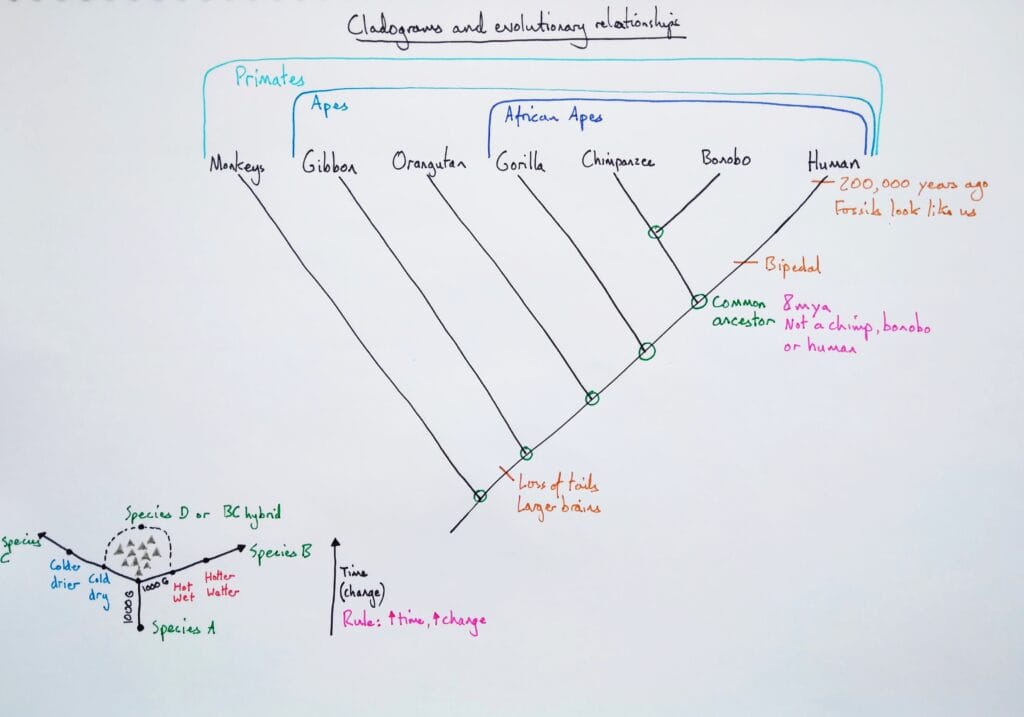 Cladograms and evolutionary relationships
Primates
Apes
African Apes
Monkeys Gibbon Orangutan Gorilla Chimpanzee Bonobo Human
200,000 years ago
Fossils look like us
Bipedal
Common
ancestor
8mya
Not a chimp, bonobo
or human
Loss of tails
Larger brains
Species D or BC hybrid
Species
C
Species B
Colder
drier
Cold
dry
1000G
1000G
Hot
wet
Hotter
Watter
Species A
Time
(change)
Rule: ↑time, ↑change